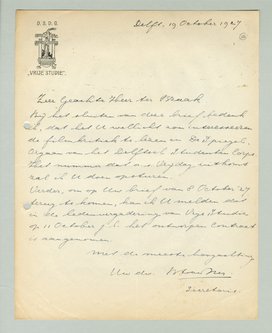 D.S.D.G.
"VRIJE STUDIE"
Delft, 19 October 1927
Zeer Geachte Heer ter Braak
Bij het sluiten van deze brief bedenk
ik, dat het U wellicht zou interesseeren
de filmkritiek te lezen in De Spiegel,
Orgaan van het Delftsch Studenten Corps.
Het nummer dat a.s. Vrijdag uitkomt
zal ik U doen opsturen.
Verder, om op Uw brief van 8 October '27
terug te komen, kan ik U melden dat
in de ledenvergadering van Vrije Studie
op 11 October j.l. het ontworpen Contract
is aangenomen.
Met de meeste hoogachting
Uw dw.
Secretaris.